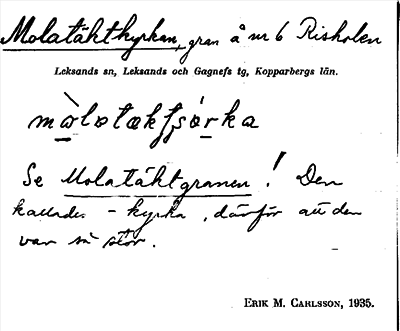 Molatäktkyrkan, gran å nr 6 Risholen
Leksands sn, Leksands och Gagnefs tg, Kopparbergs län.
mòlotækʃsórka
Se Molatäktgranen! Den
kallades – kyrka, därför att den
var så stor.
ERIK M. CARLSSON, 1935.